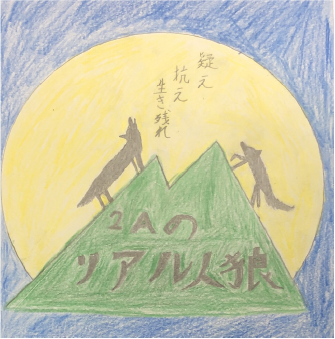 疑え
抗え
生き残れ
2Aの
リアル人狼